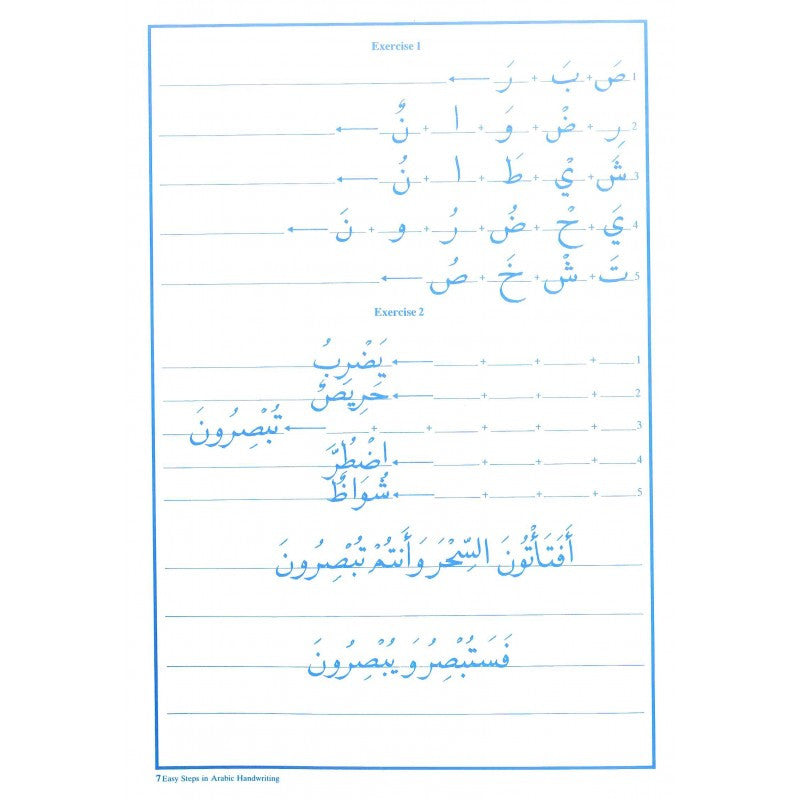 Exercise 1
1 صَ + بَ + رَ ←
2 رِ + ضْ + وَ + ا + نٌ ←
3 شَ + يْ + طَ + ا + نُ ←
4 يَ + حْ + ضُ + رُ + و + نَ ←
5 تَ + شْ + خَ + صُ ←
Exercise 2
1 + + + ← يَضْرِبُ
2 + + + ← حَرِيصٌ
3 + + + + + ← تُبْصِرُونَ
4 + + + ← اضْطُرَّ
5 + + + ← شُوَاظٌ
أَفَتَأْتُونَ السِّحْرَ وَأَنتُمْ تُبْصِرُونَ
فَسَتُبْصِرُ وَ يُبْصِرُونَ
7 Easy Steps in Arabic Handwriting